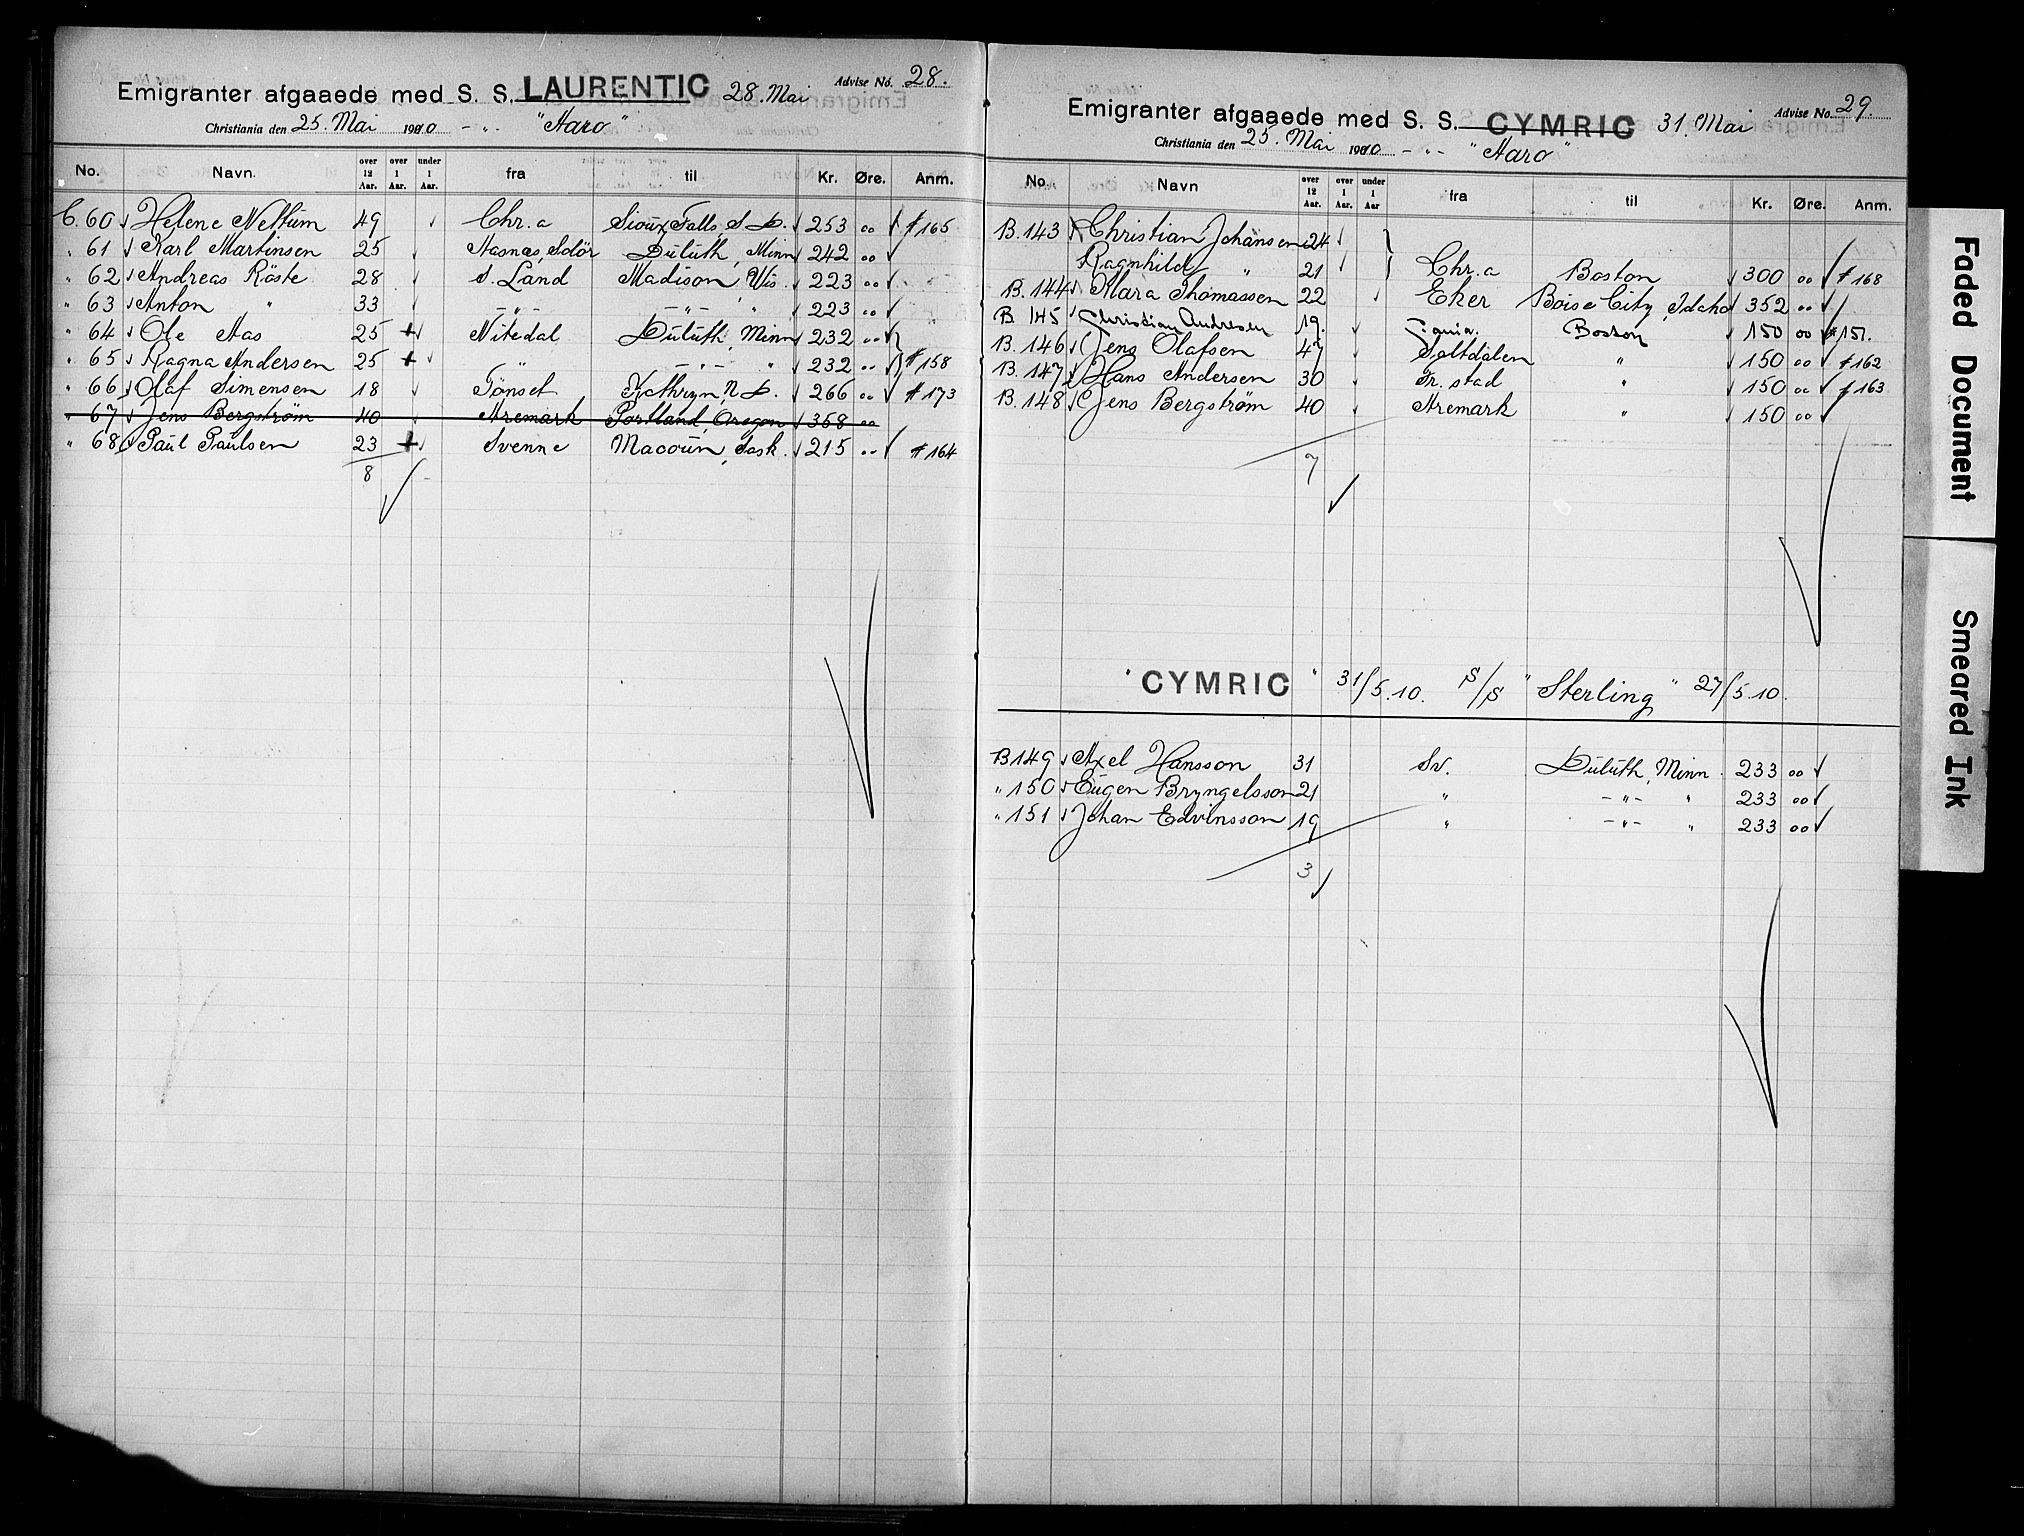 Emigranter afgaaede med S. S. LAURENTIC 28. Mai Advise No. 28.
Christiania den 25. Mai 1910 - „ - "Aaro"
No. Navn. over 12 Aar. over 1 Aar. under 1 Aar. fra til Kr. Øre. Anm.
C. 60 Helene Nettum 49 Chr.a Sioux Falls, S D. 253 00 # 165
" 61 Karl Martinsen 25 Aasnas, Solör Duluth, Minn 242 00
" 62 Andreas Röste 28 S. Land Madison, Wis. 223 00
" 63 Anton " 33 - " - - " - " 223 00
" 64 Ole Aas 25 + Nitedal Duluth, Minn 232 00
" 65 Ragna Andersen 25 + " - " - " 232 00 # 158
" 66 Olaf Simensen 18 Tönset Kathryn, N. D. 266 00 # 173
" 67 Jens Bergström 40 Aremark Portland, Oregon 358 00
" 68 Paul Paulsen 23 + Svenne Macoun, Sask. 215 00 # 164
8
Emigranter afgaaede med S. S. CYMRIC 31. Mai Advise No. 29.
Christiania den 25. Mai 1910 - „ - "Aaro"
No. Navn over 12 Aar. over 1 Aar. under 1 Aar fra til Kr. Øre. Anm.
B. 143 Christian Johansen 24
Ragnhild " 21 Chr.a Boston 300 00 # 168
B. 144 Mara Thomassen 22 Eker Boise City, Idaho 352 00
B 145 Christian Andresen 19. Boston 150 00 # 151.
B. 146 Jens Olafsen 47 Saltdalen " 150 00 # 162
B. 147 Hans Andersen 30 Fr. stad " 150 00 # 163
B. 148 Jens Bergström 40 Aremark " 150 00
7
" CYMRIC " 31/5.10. S/S "Sterling" 27/5.10.
B 149 Axel Hansson 31 Sv. Duluth, Minn. 233 00
" 150 Eugen Bryngelsson 21 " - " - " 233 00
" 151 Johan Edvinsson 19 " - " - " 233 00
3
Faded Document
Smeared Ink